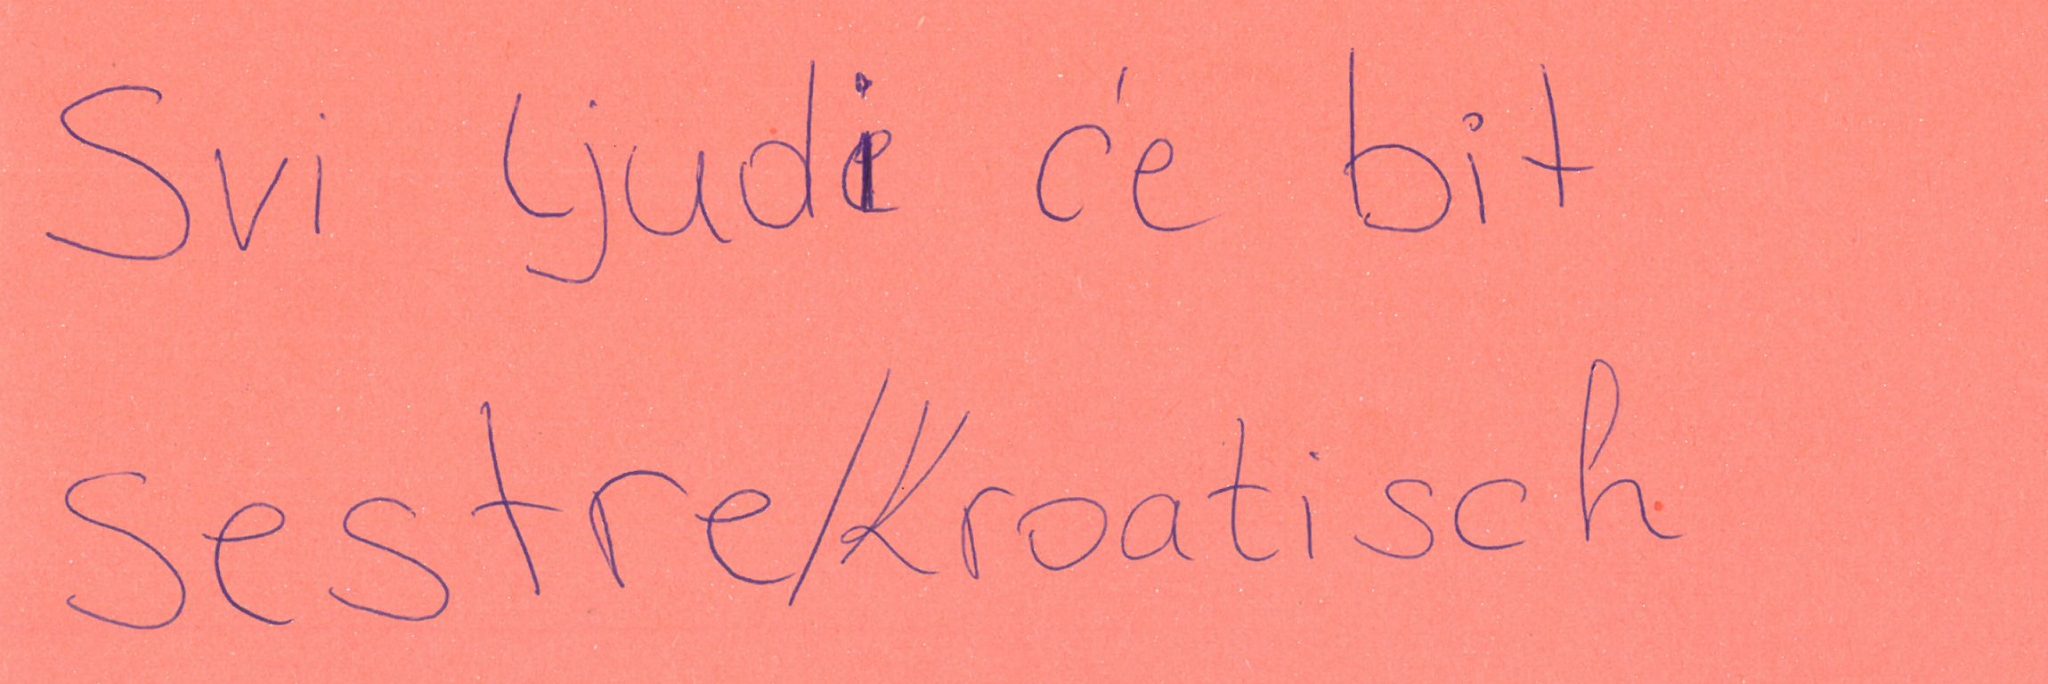 Svi ljudi će bit
sestre/Kroatisch